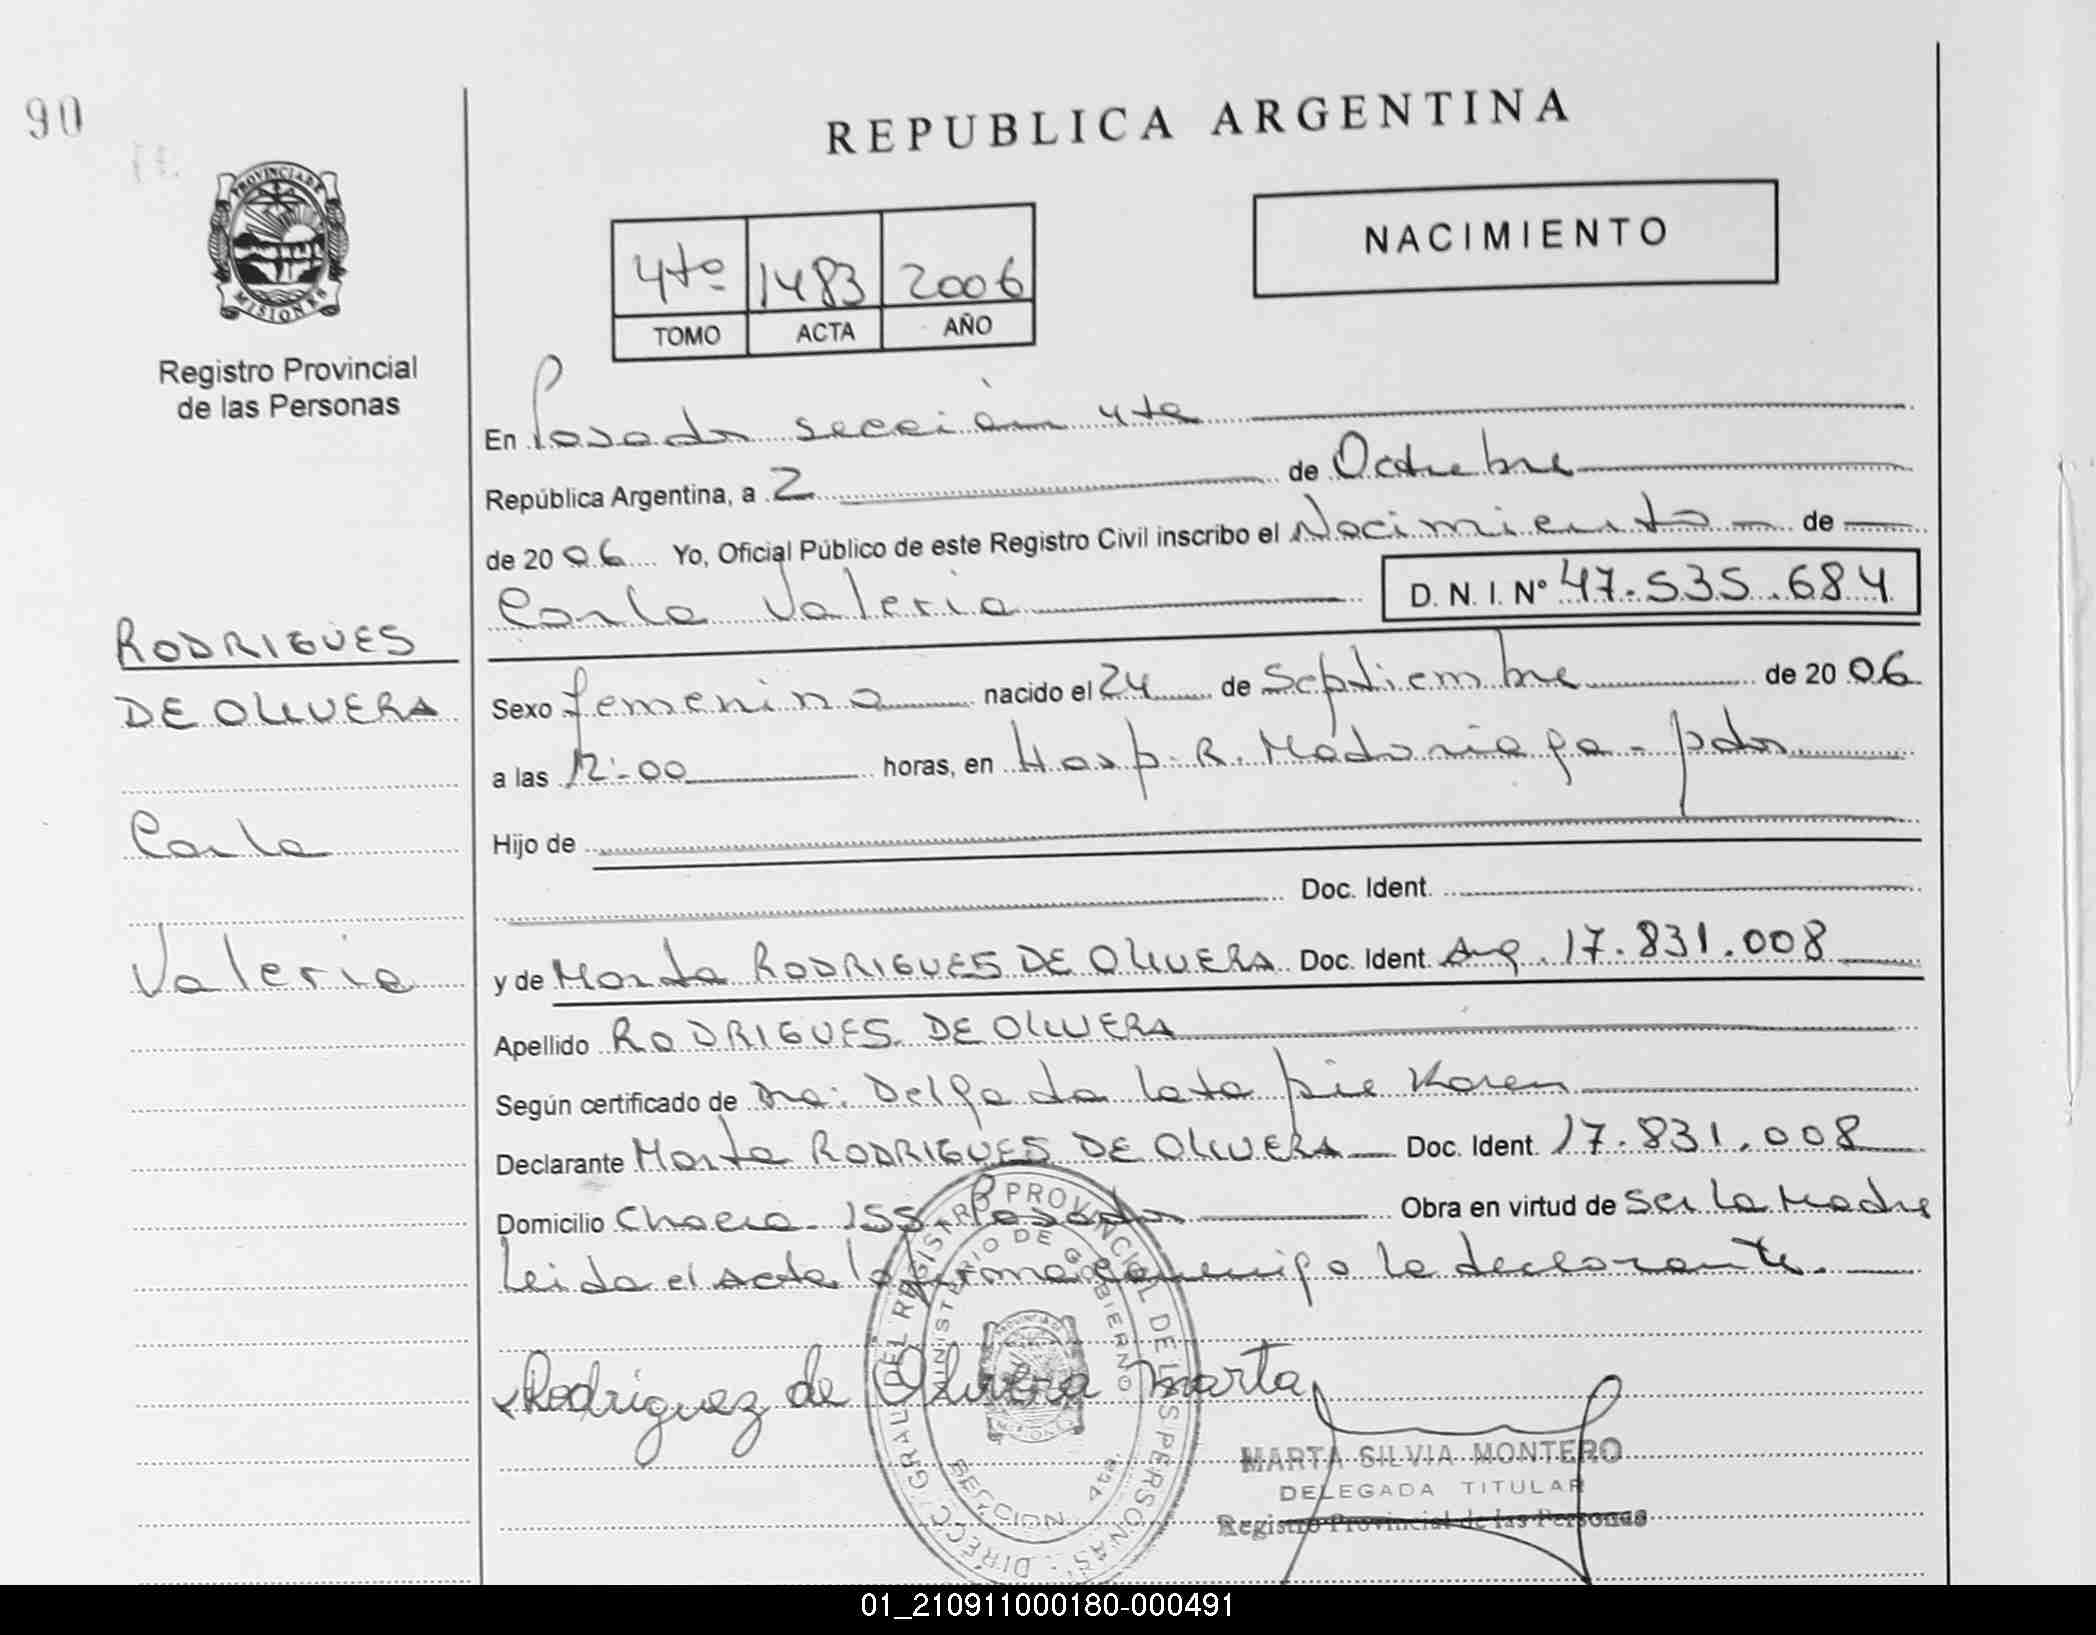 90
REPUBLICA ARGENTINA
PROVINCIA DE
MISIONES
Registro Provincial
de las Personas
4to 1483 2006
TOMO ACTA AÑO
NACIMIENTO
En Posadas sección 4ta
República Argentina, a 2 de Octubre
de 2006 Yo, Oficial Público de este Registro Civil inscribo el Nacimiento de
Carla Valeria D.N.I. Nº 47.535.684
RODRIGUES
DE OLIVERA
Carla
Valeria
Sexo femenino nacido el 24 de Septiembre de 2006
a las 12:00 horas, en Hosp. R. Madariaga - pdas
Hijo de
Doc. Ident.
y de Marta RODRIGUES DE OLIVERA Doc. Ident. Arg. 17.831.008
Apellido RODRIGUES DE OLIVERA
Según certificado de Dra: Delgado Karen
Declarante Marta RODRIGUES DE OLIVERA Doc. Ident. 17.831.008
Domicilio Chacra 155 Posadas Obra en virtud de ser la Madre
Leida el Acta la firma conmigo la declarante.
Rodriguez de Olivera Marta
DIRECC. GRAL. DEL REGISTRO PROVINCIAL DE LAS PERSONAS
MINISTERIO DE GOBIERNO
SECCION 4ta.
MARTA SILVIA MONTERO
DELEGADA TITULAR
Registro Provincial de las Personas
01_210911000180-000491